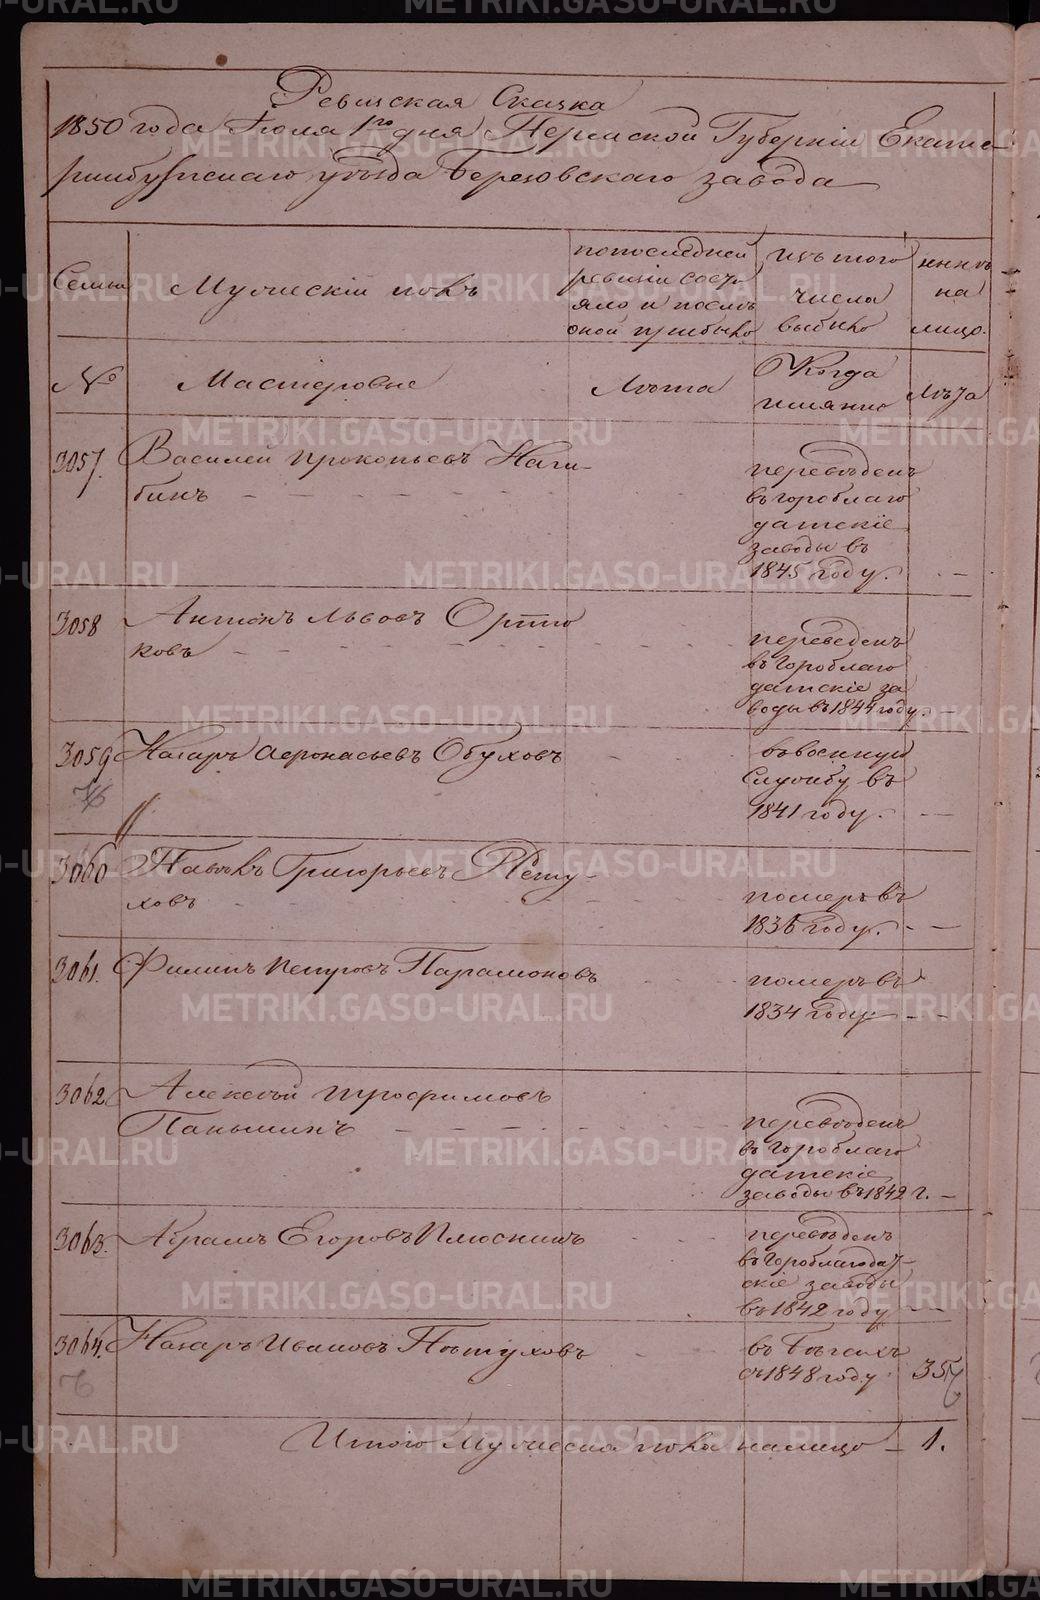 Ревизская Сказка
1850 года Іюля 1го дня Пермской Губерніи Екате
ринбургскаго уѣзда Березовскаго завода
Семьи
Мужескій полъ
по последней
ревизіи состо
яло и послѣ
оной прибыло
изъ того
числа
выбыло
нынѣ
на
лицо.
№
Мастеровые
Лѣта
Когда
имянно
Лѣта
3057.
Василей Прокопьевъ Наги-
бинъ
переведенъ
въ гороблаго
датскіе
заводы въ
1845 году.
3058
Антонъ Львовъ
ковъ
переведенъ
въ гороблаго
датскіе за
воды въ 1844 году.
3059
Назаръ Афонасьевъ Обуховъ
въ военную
службу въ
1841 году.
3060
Яковъ Григорьевъ Пету-
ховъ
померъ въ
1836 году.
3061.
Филипъ Петровъ Парамоновъ
померъ въ
1834 году
3062
Алексѣй Трофимовъ
Паньшинъ
переведенъ
въ гороблаго
датскіе
заводы въ 1842 г.
3063.
Абрамъ Егоровъ Плюснинъ
переведенъ
въ Гороблагодат-
скіе заводы
въ 1842 году
3064.
Назаръ Ивановъ Пѣтуховъ
въ бѣгахъ
съ 1848 году
35
Итого Мужеска пола на лицо – 1.
METRIKI.GASO-URAL.RU